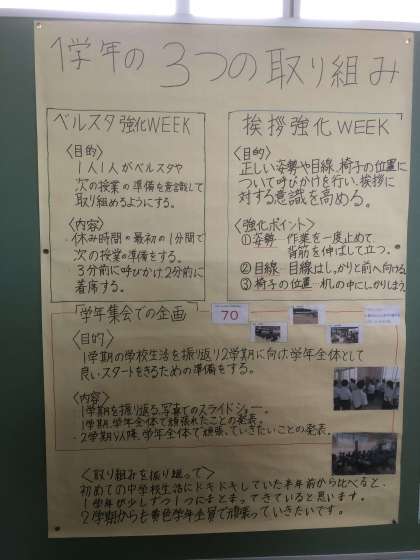 1学年の3つの取り組み
ベルスタ強化WEEK
〈目的〉
1人1人がベルスタや
次の授業の準備を意識して
取り組めるようにする。
〈内容〉
・休み時間の最初の1分間で
次の授業の準備をする。
・3分前に呼びかけ2分前に
着席する。
挨拶強化WEEK
〈目的〉
正しい姿勢や目線、椅子の位置に
ついて呼びかけを行い、挨拶に
対する意識を高める。
〈強化ポイント〉
①姿勢…作業を一度止めて
背筋を伸ばして立つ。
②目線…目線はしっかりと前へ向ける
③椅子の位置…机の中にしっかりしまう
「学年集会での企画」
70
〈目的〉
1学期の学校生活を振り返り2学期に向け、学年全体として
良いスタートをきるための準備をする。
〈内容〉
・1学期を振り返る写真でのスライドショー。
・1学期、学年全体で頑張れたことの発表。
・2学期以降、学年全体で頑張っていきたいことの発表。
〈取り組みを振り返って〉
初めての中学校生活にドキドキしていた半年前から比べると、
1学年が少しずつ1つにまとまってきていると思います。
2学期からも黄色学年全員で頑張っていきたいです。